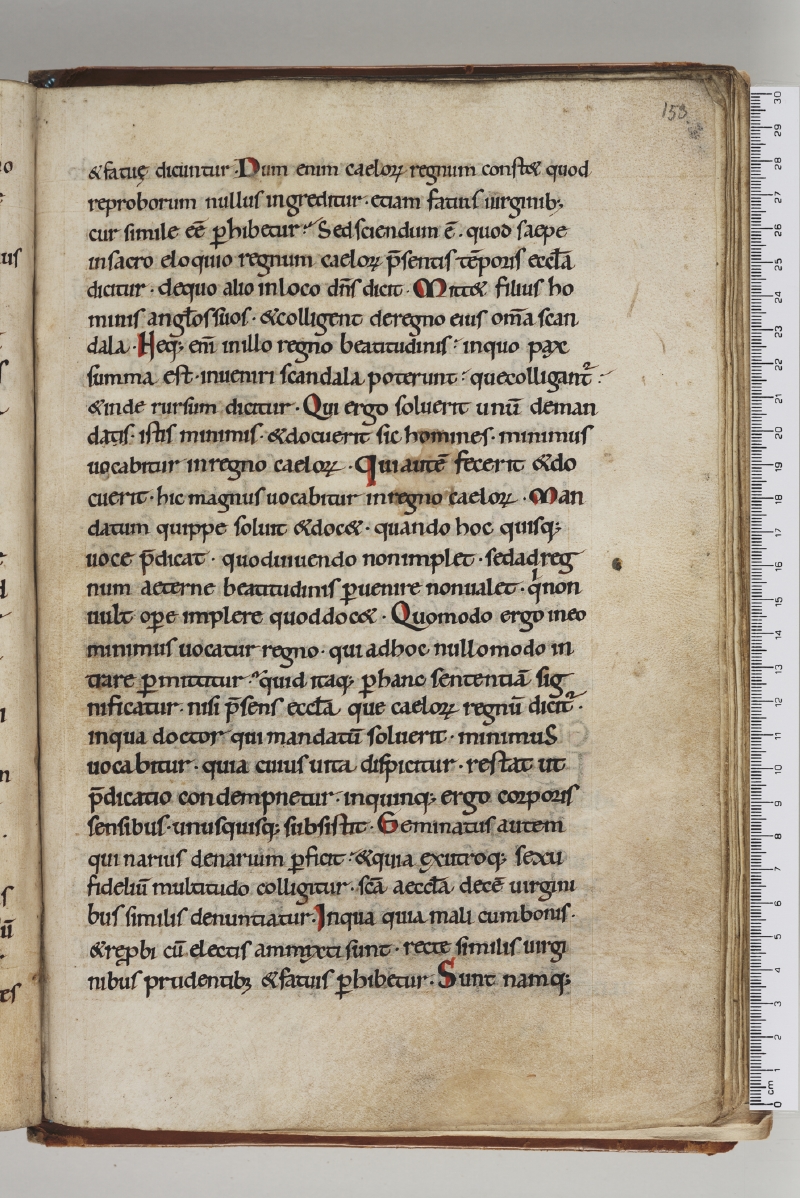 153
&fatuę dicuntur · Dum enim caeloꝝ regnum const& quod
reproborum nullus ingreditur · etiam fatuis uirginib;
cur simile eē ꝑhibetur? Sed sciendum ē · quod saepe
insacro eloquio regnum caeloꝝ p̄sentis tēporis eccl̄a
dicitur · dequo alio inloco dn̄s dicit · Mitt& filius ho
minis angl̄os suos · &colligent deregno eius om̄a scan
dala · Neq; em̄ inillo regno beatitudinis? inquo pax
summa est · inueniri scandala poterunt? quecolligant᷑ ·
&inde rursum dicitur · Qui ergo soluerit unū deman
datis · istis minimis · &docuerit sic homines · minimus
uocabitur inregno caeloꝝ · Qui autē fecerit &do
cuerit · hic magnus uocabitur inregno caeloꝝ · Man
datum quippe soluit &doc& · quando hoc quisq;
uoce p̄dicat · quoduiuendo nonimplet · sedadreg
num aeterne beatitudinis ꝑuenire nonualet · q̇ non
uult oꝑe implere quoddoc& · Quomodo ergo ineo
minimus uocatur regno · qui adhoc nullomodo in
trare ꝑmittitur? quid itaq; ꝑhanc sententiā sig
nificatur · nisi p̄sens eccl̄a que caeloꝝ regnū dicit᷑ ·
inqua doctor qui mandatū soluerit · minimuS
uocabitur · quia cuius uita dispicitur · restat ut
p̄dicatio condempnetur · inquinq; ergo corporis
sensibus · unusquisq; subsistit · Geminatus autem
quinarius denarium ꝑficit? &quia exutroq; sexu
fideliū multitudo colligitur · sc̄a aeccl̄a decē uirgini
bus similis denuntiatur · Inqua quia mali cumbonis ·
&rep̱bi cū electis ammixti sunt · recte similis uirgi
nibus prudentib; &fatuis ꝑhibetur · Sunt namq;